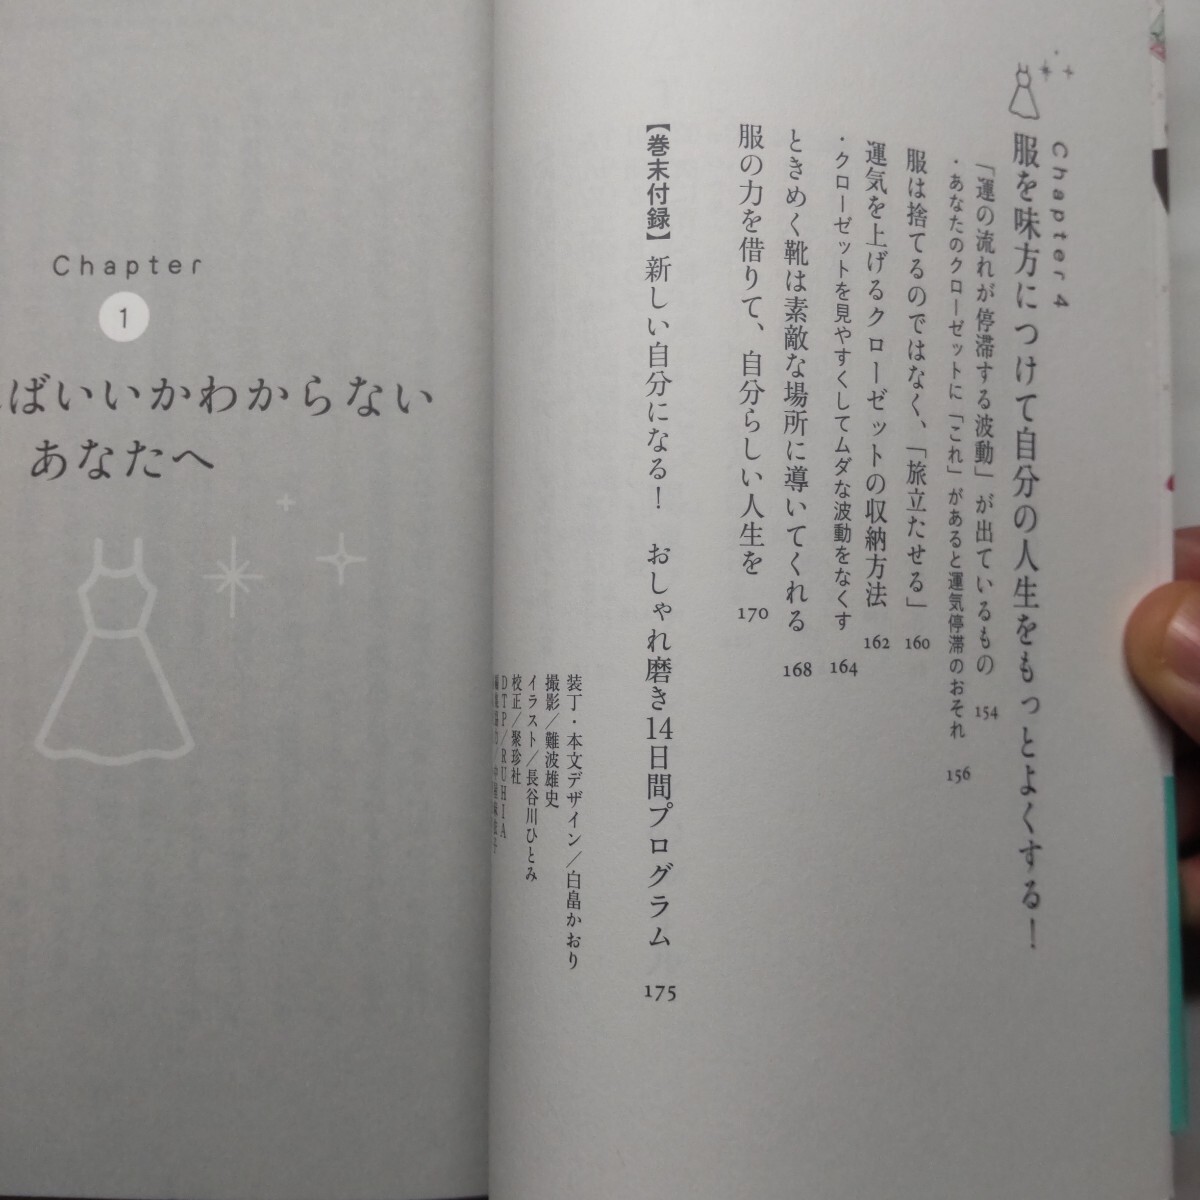 Chapter 4
服を味方につけて自分の人生をもっとよくする！
「運の流れが停滞する波動」が出ているもの 154
・あなたのクローゼットに「これ」があると運気停滞のおそれ 156
服は捨てるのではなく、「旅立たせる」 160
運気を上げるクローゼットの収納方法 162
・クローゼットを見やすくしてムダな波動をなくす 164
ときめく靴は素敵な場所に導いてくれる 168
服の力を借りて、自分らしい人生を 170
【巻末付録】新しい自分になる！　おしゃれ磨き14日間プログラム 175
装丁・本文デザイン／白畠かおり
撮影／難波雄史
イラスト／長谷川ひとみ
校正／聚珍社
DTP／RUHIA
Chapter
1
ばいいかわからない
あなたへ